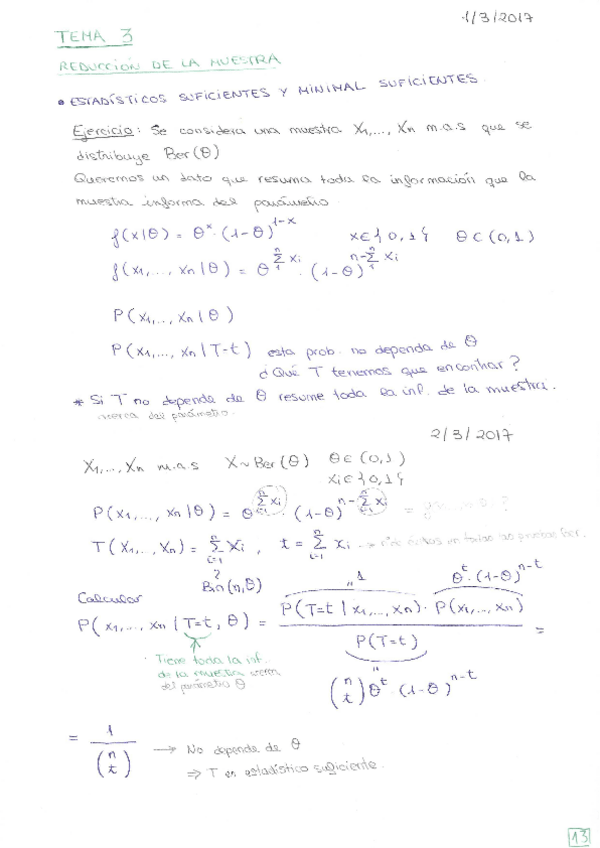 1/3/2017
TEMA 3
REDUCCIÓN DE LA MUESTRA
• ESTADÍSTICOS SUFICIENTES Y MINIMAL SUFICIENTES.
Ejercicio: Se considera una muestra X₁,..., Xn m.a.s que se
distribuye Ber(θ)
Queremos un dato que resuma toda la información que la
muestra informa del parámetro.
f(x|θ) = θ^x · (1-θ)^(1-x)   x∈{0,1}   θ∈(0,1)
f(x₁,..., xn|θ) = θ^(Σ₁ⁿ xi) · (1-θ)^(n-Σ₁ⁿ xi)
P(x₁,..., xn|θ)
P(x₁,..., xn|T=t) esta prob. no dependa de θ
¿Qué T tenemos que encontrar?
* Si T no depende de θ resume toda la inf. de la muestra
acerca del parámetro.
2/3/2017
X₁,..., Xn m.a.s   X~Ber(θ)   θ∈(0,1)
xi∈{0,1}
P(x₁,..., xn|θ) = θ^(Σᵢ₌₁ⁿ xi) · (1-θ)^(n-Σᵢ₌₁ⁿ xi) =
T(X₁,..., Xn) = Σᵢ₌₁ⁿ Xi , t = Σᵢ₌₁ⁿ xi → nº de éxitos en todas las pruebas Ber.
Bin(n,θ)
1   θ^t · (1-θ)^(n-t)
Calcular
P(x₁,..., xn|T=t, θ) = P(T=t|x₁,..., xn) · P(x₁,..., xn) / P(T=t) =
Tiene toda la inf.
de la muestra acerca
del parámetro θ
(n t) θ^t · (1-θ)^(n-t)
= 1 / (n t) → No depende de θ
⇒ T es estadístico suficiente.
13